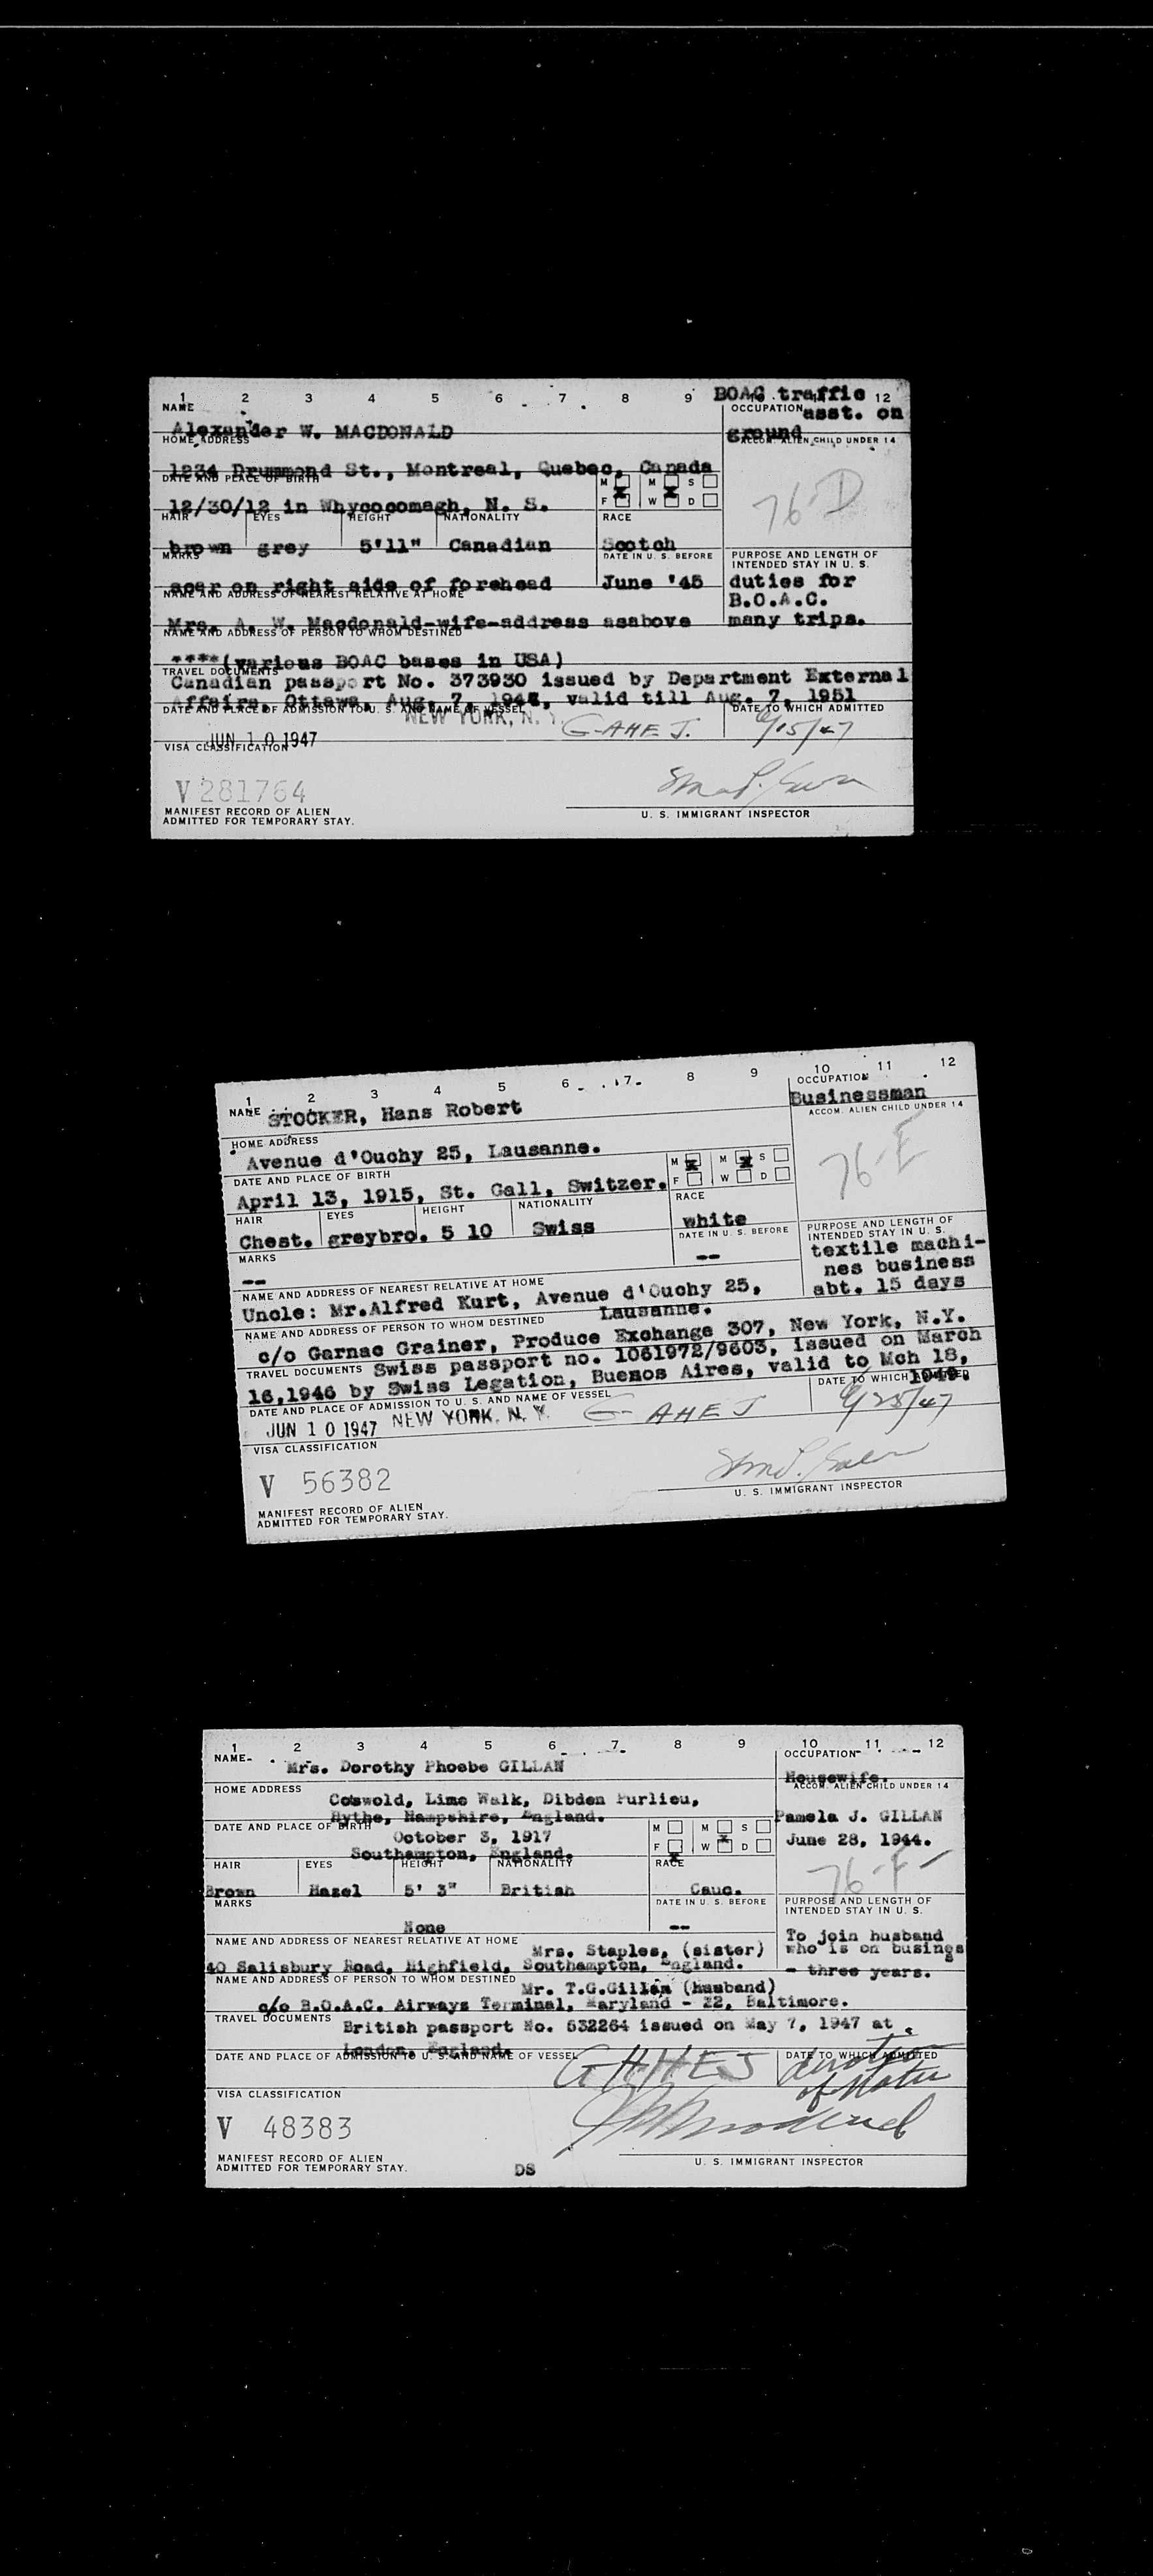 1 2 3 4 5 6 7 8 9 12
BOAC traffic
NAME
OCCUPATION asst. on
Alexander W. MACDONALD
ground
HOME ADDRESS
ACCOM. ALIEN CHILD UNDER 14
1234 Drummond St., Montreal, Quebec, Canada
DATE AND PLACE OF BIRTH
M X M S
12/30/12 in Whycocomagh, N. S.
F W X D
76-D
HAIR EYES HEIGHT NATIONALITY RACE
brown grey 5'11" Canadian Scotch
MARKS DATE IN U. S. BEFORE PURPOSE AND LENGTH OF
INTENDED STAY IN U. S.
scar on right side of forehead June '45 duties for
NAME AND ADDRESS OF NEAREST RELATIVE AT HOME
B.O.A.C.
Mrs. A. W. Macdonald-wife-address asabove many trips.
NAME AND ADDRESS OF PERSON TO WHOM DESTINED
****(various BOAC bases in USA)
TRAVEL DOCUMENTS
Canadian passport No. 373930 issued by Department External
Affairs, Ottawa, Aug. 7, valid till Aug. 7, 1951
DATE AND PLACE OF ADMISSION TO U. S. AND NAME OF VESSEL DATE TO WHICH ADMITTED
NEW YORK, N. Y. G-AHEJ. 6/15/47
JUN 10 1947
VISA CLASSIFICATION
V 281764
MANIFEST RECORD OF ALIEN
ADMITTED FOR TEMPORARY STAY.
U. S. IMMIGRANT INSPECTOR
1 2 3 4 5 6 7 8 9 10 11 12
NAME STOCKER, Hans Robert
OCCUPATION
Businessman
HOME ADDRESS
ACCOM. ALIEN CHILD UNDER 14
Avenue d'Ouchy 25, Lausanne.
DATE AND PLACE OF BIRTH
M X M X S
April 13, 1915, St. Gall, Switzer.
F W D
76-E
HAIR EYES HEIGHT NATIONALITY RACE
Chest. greybro. 5 10 Swiss white
MARKS DATE IN U. S. BEFORE PURPOSE AND LENGTH OF
INTENDED STAY IN U. S.
-- -- textile machi-
nes business
abt. 15 days
NAME AND ADDRESS OF NEAREST RELATIVE AT HOME
Uncle: Mr.Alfred Kurt, Avenue d'Ouchy 25,
Lausanne.
NAME AND ADDRESS OF PERSON TO WHOM DESTINED
c/o Garnac Grainer, Produce Exchange 307, New York, N.Y.
TRAVEL DOCUMENTS Swiss passport no. 1061972/9603, issued on March
16,1946 by Swiss Legation, Buenos Aires, valid to Mch 18,
1949.
DATE AND PLACE OF ADMISSION TO U. S. AND NAME OF VESSEL DATE TO WHICH ADMITTED
JUN 10 1947 NEW YORK, N. Y. G-AHEJ 6/25/47
VISA CLASSIFICATION
V 56382
MANIFEST RECORD OF ALIEN
ADMITTED FOR TEMPORARY STAY.
U. S. IMMIGRANT INSPECTOR
1 2 3 4 5 6 7 8 9 10 11 12
NAME Mrs. Dorothy Phoebe GILLAN
OCCUPATION
Housewife.
HOME ADDRESS
ACCOM. ALIEN CHILD UNDER 14
Coswold, Lime Walk, Dibden Purlieu,
Hythe, Hampshire, England.
Pamela J. GILLAN
DATE AND PLACE OF BIRTH
M M S
October 3, 1917
June 28, 1944.
F X W X D
Southampton, England.
76-F
HAIR EYES HEIGHT NATIONALITY RACE
Brown Hazel 5' 3" British Cauc.
MARKS DATE IN U. S. BEFORE PURPOSE AND LENGTH OF
INTENDED STAY IN U. S.
None -- To join husband
NAME AND ADDRESS OF NEAREST RELATIVE AT HOME
Mrs. Staples, (sister) who is on busines
40 Salisbury Road, Highfield, Southampton, England. - three years.
NAME AND ADDRESS OF PERSON TO WHOM DESTINED
Mr. T.G.Gillan (husband)
c/o B.O.A.C. Airways Terminal, Maryland - 22, Baltimore.
TRAVEL DOCUMENTS
British passport No. 532264 issued on May 7, 1947 at
London, England.
DATE AND PLACE OF ADMISSION TO U. S. AND NAME OF VESSEL DATE TO WHICH ADMITTED
GAHEJ duration
of status
VISA CLASSIFICATION
V 48383
MANIFEST RECORD OF ALIEN
ADMITTED FOR TEMPORARY STAY.
DS
U. S. IMMIGRANT INSPECTOR